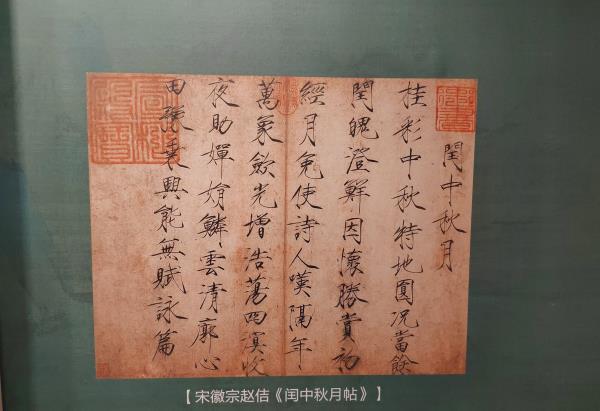 閏中秋月
桂彩中秋特地圓況當餘
閏魄澄鮮因懷勝賞初
經月免使詩人嘆隔年
萬象歛光增浩蕩四溟收
夜助嬋娟鱗雲清廓心
田豫乘興能無賦詠篇
【宋徽宗赵佶《闰中秋月帖》】